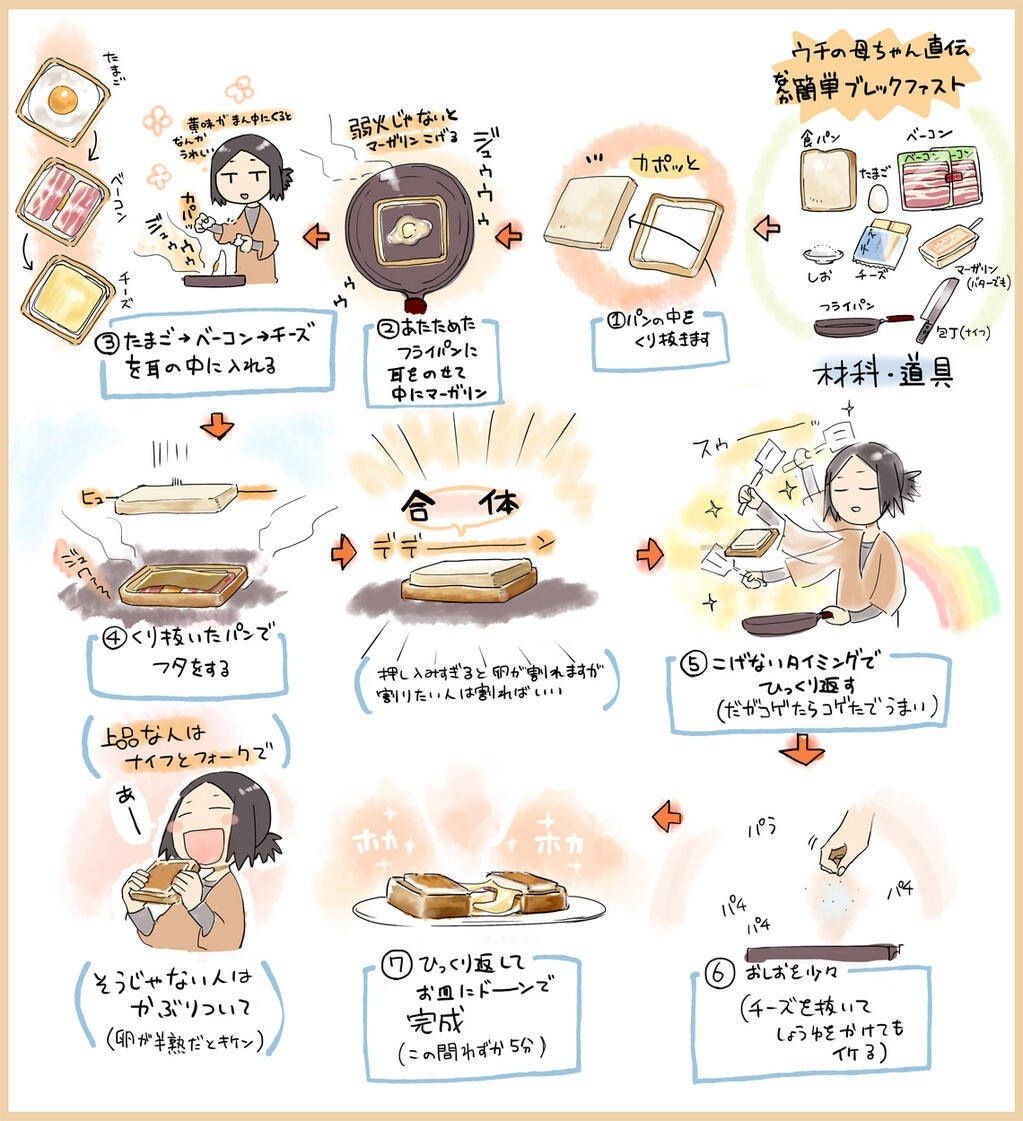 ウチの母ちゃん直伝
なんか簡単ブレックファスト
食パン
たまご
ベーコン
ベーコン
ーコン
しお
チーズ
マーガリン
(バターでも)
フライパン
包丁(ナイフ)
材料・道具
カポッと
①パンの中を
くり抜きます
弱火じゃないと
マーガリンこげる
ジュウゥゥ
ゥゥ
②あたためた
フライパンに
耳をのせて
中にマーガリン
黄味がまん中にくると
なんか
うれしい
カパッ
ジュウウ
たまご
ベーコン
チーズ
③たまご→ベーコン→チーズ
を耳の中に入れる
ヒュー
ジュワ〜〜
④くり抜いたパンで
フタをする
合体
デデーーン
(押し込みすぎると卵が割れますが
割りたい人は割ればいい)
スゥーー
⑤こげないタイミングで
ひっくり返す
(だがコゲたらコゲたでうまい)
パラ
パラ
パラ
パラ
⑥おしおを少々
(チーズを抜いて
しょうゆをかけても
イケる)
ホカ
ホカ
⑦ひっくり返して
お皿にドーンで
完成
(この間わずか5分)
(上品な人は
ナイフとフォークで)
あー
(そうじゃない人は
かぶりついて
(卵が半熟だとキケン))